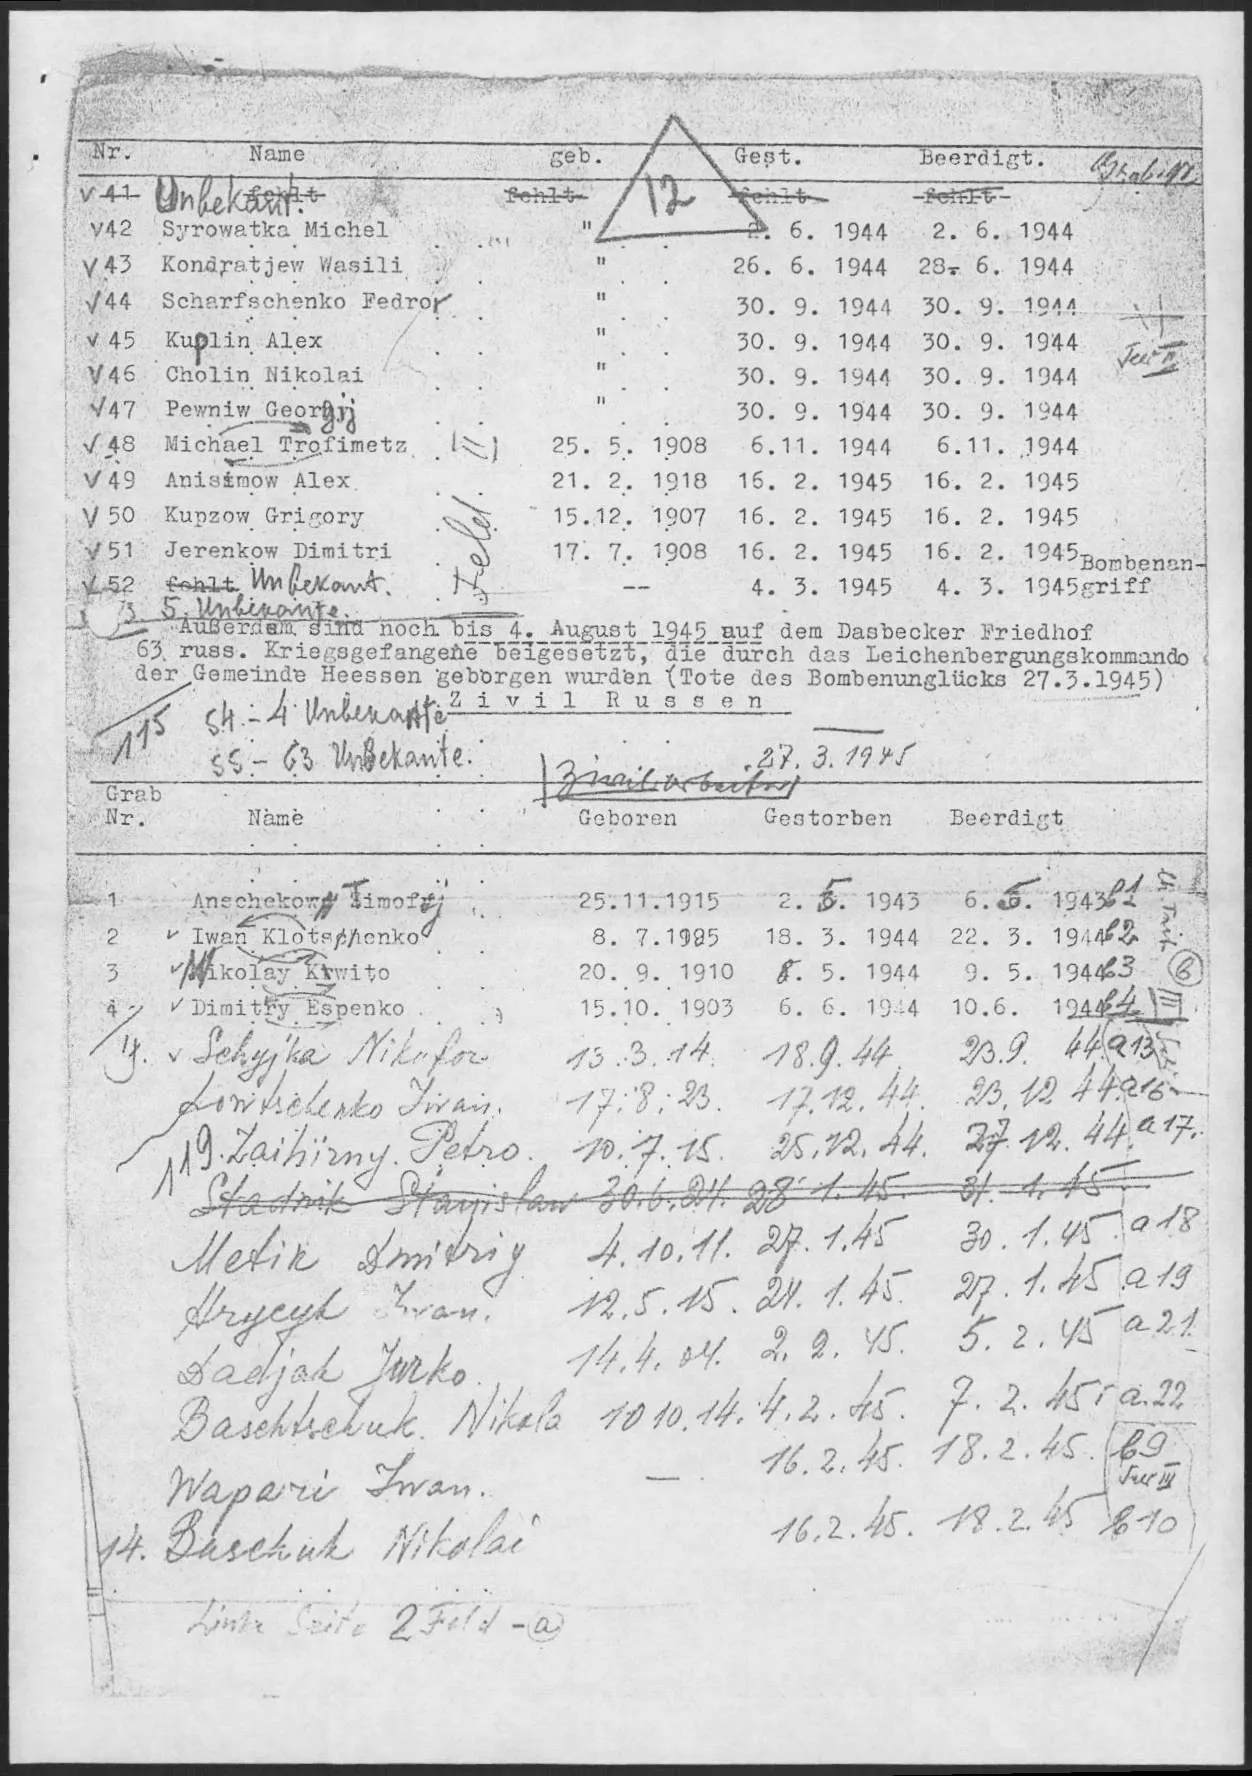 Nr. Name geb. Gest. Beerdigt. Grab. Nr.
12
41 fehlt Unbekant. fehlt fehlt fehlt
42 Syrowatka Michel " 2. 6. 1944 2. 6. 1944
43 Kondratjew Wasili " 26. 6. 1944 28. 6. 1944
44 Scharfschenko Fedror " 30. 9. 1944 30. 9. 1944
45 Kuplin Alex " 30. 9. 1944 30. 9. 1944
46 Cholin Nikolai " 30. 9. 1944 30. 9. 1944
47 Pewniw Georgij " 30. 9. 1944 30. 9. 1944
48 Michael Trofimetz 25. 5. 1908 6.11. 1944 6.11. 1944
49 Anisimow Alex 21. 2. 1918 16. 2. 1945 16. 2. 1945
50 Kupzow Grigory 15.12. 1907 16. 2. 1945 16. 2. 1945
51 Jerenkow Dimitri 17. 7. 1908 16. 2. 1945 16. 2. 1945 Bombenan-
52 fehlt Unbekant. -- 4. 3. 1945 4. 3. 1945 griff
Feld II
5. Unbekante.
Außerdem sind noch bis 4. August 1945 auf dem Dasbecker Friedhof
63 russ. Kriegsgefangene beigesetzt, die durch das Leichenbergungskommando
der Gemeinde Heessen geborgen wurden (Tote des Bombenunglücks 27.3.1945)
Zivil Russen
115 54 - 4 Unbekante
55 - 63 Unbekante. 27. 3. 1945
Zivilarbeiter
Grab
Nr. Name Geboren Gestorben Beerdigt
1 Anschekow Timofej 25.11.1915 2. 5. 1943 6. 5. 1943 b1
2 Iwan Klotschenko 8. 7.1925 18. 3. 1944 22. 3. 1944 b2
3 Nikolay Krwito 20. 9. 1910 8. 5. 1944 9. 5. 1944 b3
4 Dimitry Espenko 15.10. 1903 6. 6. 1944 10.6. 1944 b4 III
Schyjka Nikofor 13.3.14. 18.9.44 23.9. 44 a13
Lowtschenko Iwan. 17.8.23. 17.12.44. 23.12 44 a16
119. Zaihirny. Petro. 10.7.15. 25.12.44. 27.12.44 a17.
Stadnik Stanislaw 30.6.24. 28 1.45. 31. 1.45
Metik Dmitriy 4.10.11. 27.1.45 30.1.45 a18
Hrycyk Iwan. 12.5.15. 24.1.45. 27.1.45 a19
Dadjak Jurko 14.4.04. 2.2.45. 5.2.45 a21.
Baschtschuk. Nikola 10 10.14. 4.2.45. 7.2.45 a.22
Wapari Iwan. — 16.2.45. 18.2.45. b9
14. Baschuk Nikolai 16.2.45. 18.2.45 b10
Linke Seite 2 Feld - a